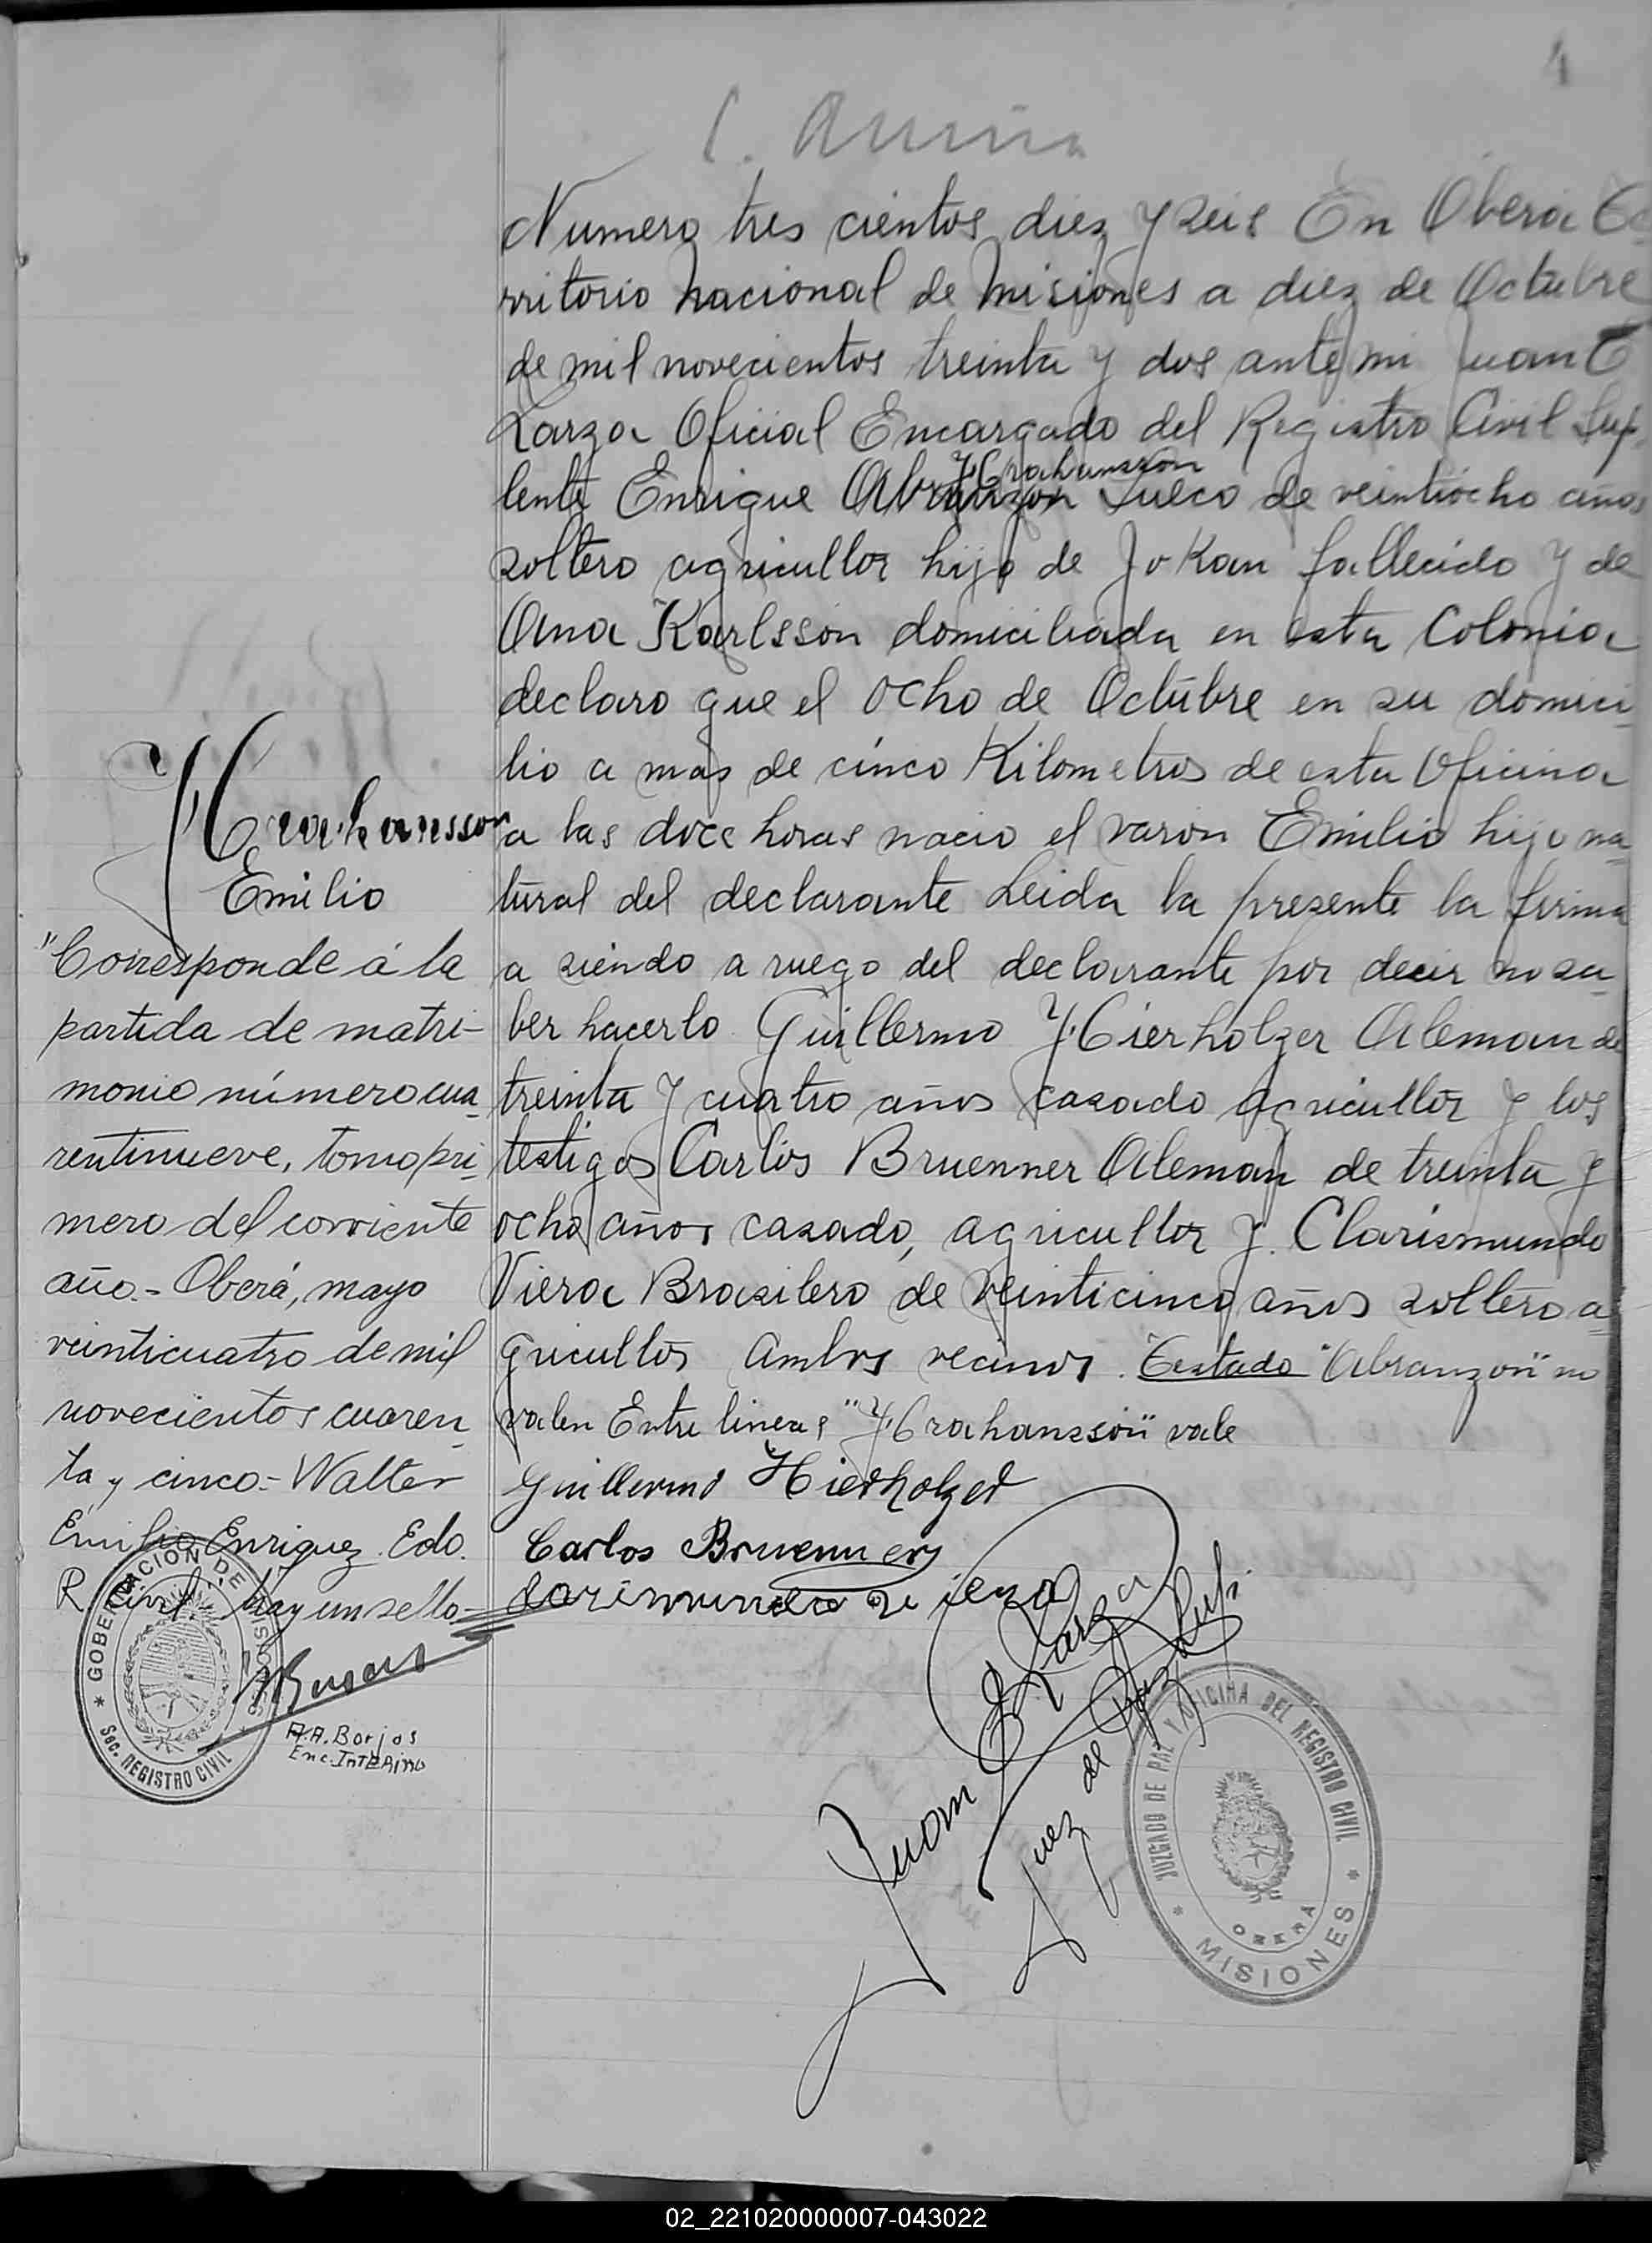 4
Numero tres cientos diez y seis En Obera Te
rritorio nacional de Misiones a diez de Octubre
de mil novecientos treinta y dos ante mi Juan E
Larza Oficial Encargado del Registro Civil Sup
Hrahansson
lente Enrique Abranzon Sueco de veintiocho años
soltero agricultor hijo de Jokan fallecido y de
Ana Karlsson domiciliada en esta Colonia
declaro que el ocho de Octubre en su domici
lio a mas de cinco Kilometros de esta Oficina
a las doce horas nacio el varon Emilio hijo na
tural del declarante Leida la presente la firma
a siendo a ruego del declarante por decir no sa
ber hacerlo Guillermo Hierholzer Aleman de
treinta y cuatro años casado agricultor y los
testigos Carlos Bruenner Aleman de treinta y
ocho años casado, agricultor y Clarismundo
Viera Brasilero de veinticinco años soltero a
gricultor ambos vecinos. Testado "Abranzon" no
valen Entre lineas "Hrahansson" vale
Guillermo Hierholzer
Carlos Bruenner
Juan E Larza
Juez de Paz Supl
Hrahansson
Emilio
"Corresponde á la
partida de matri-
monio número cua
rentinueve, tomo pri
mero del corriente
año.- Oberá, mayo
veinticuatro de mil
novecientos cuaren
ta y cinco.- Walter
Emilio Enriquez. Edo.
R. Civil. Hay un sello-
A.A. Borjas
Enc. Interino
GOBERNACION DE MISIONES
Sec. REGISTRO CIVIL
JUZGADO DE PAZ Y OFICINA DEL REGISTRO CIVIL
OBERA
MISIONES
02_221020000007-043022